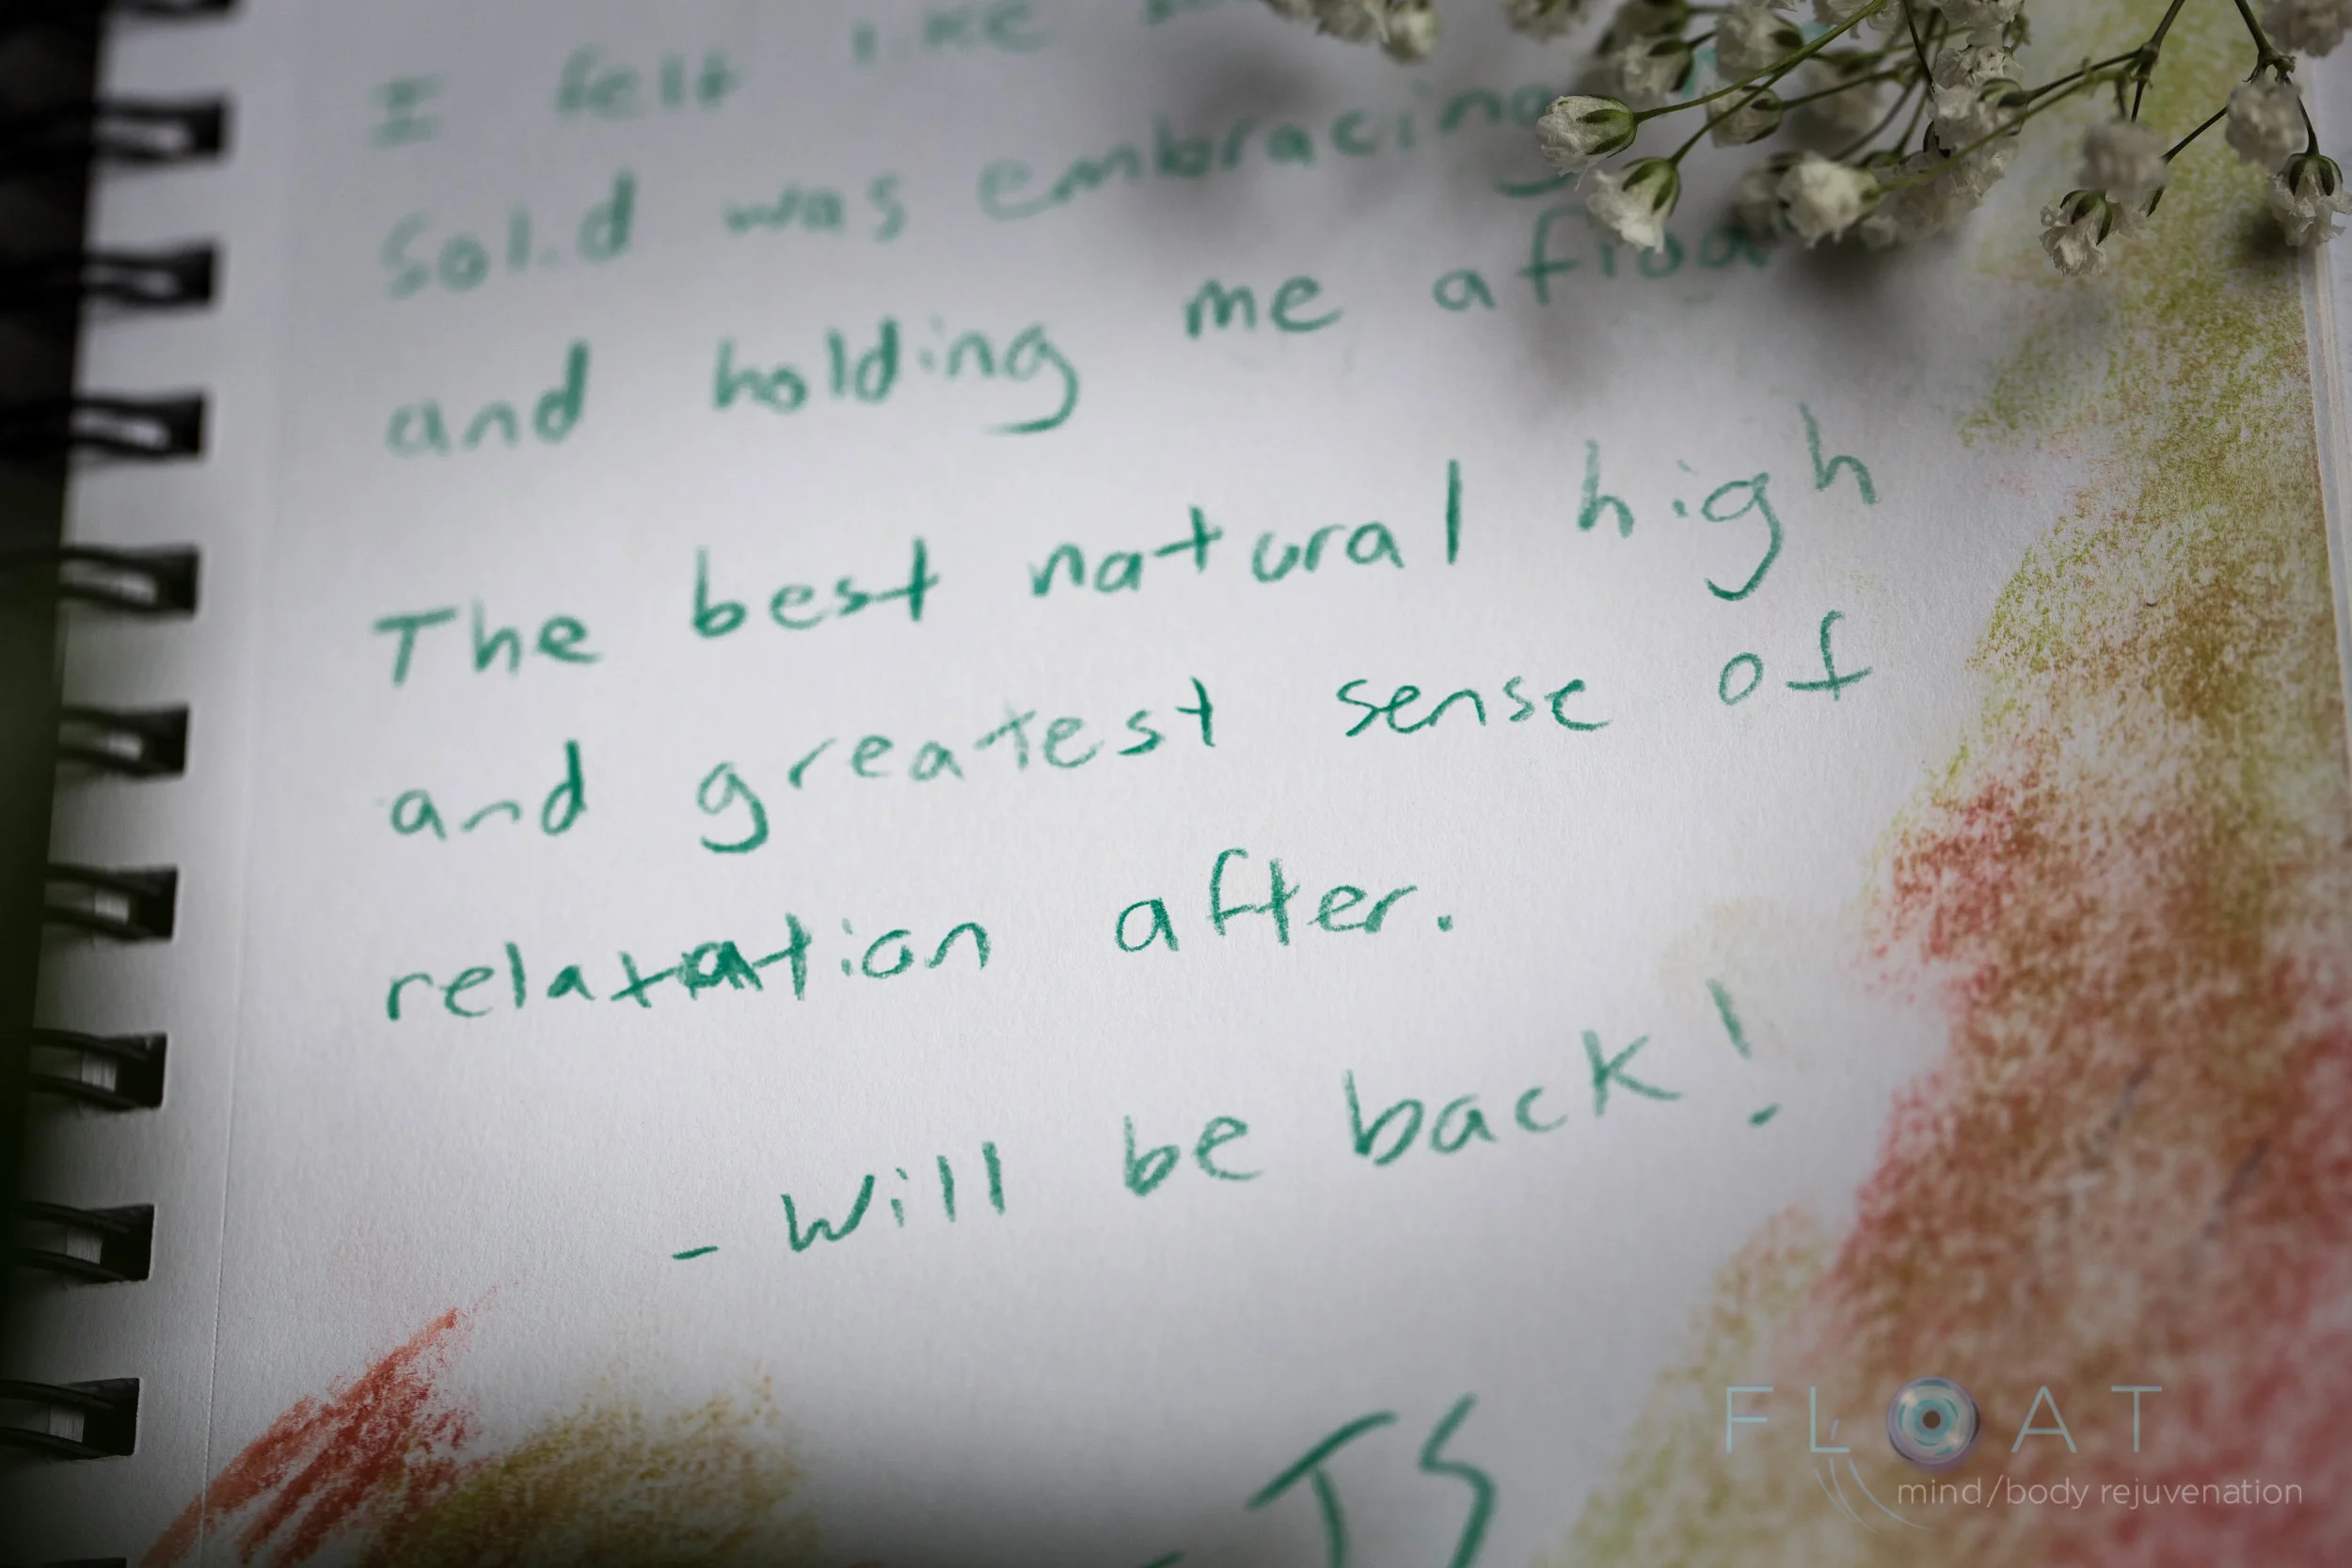 I felt like
Solid was embracing
and holding me
The best natural high
and greatest sense of
relaxation after.
- Will be back!
- JS
FLOAT
mind/body rejuvenation